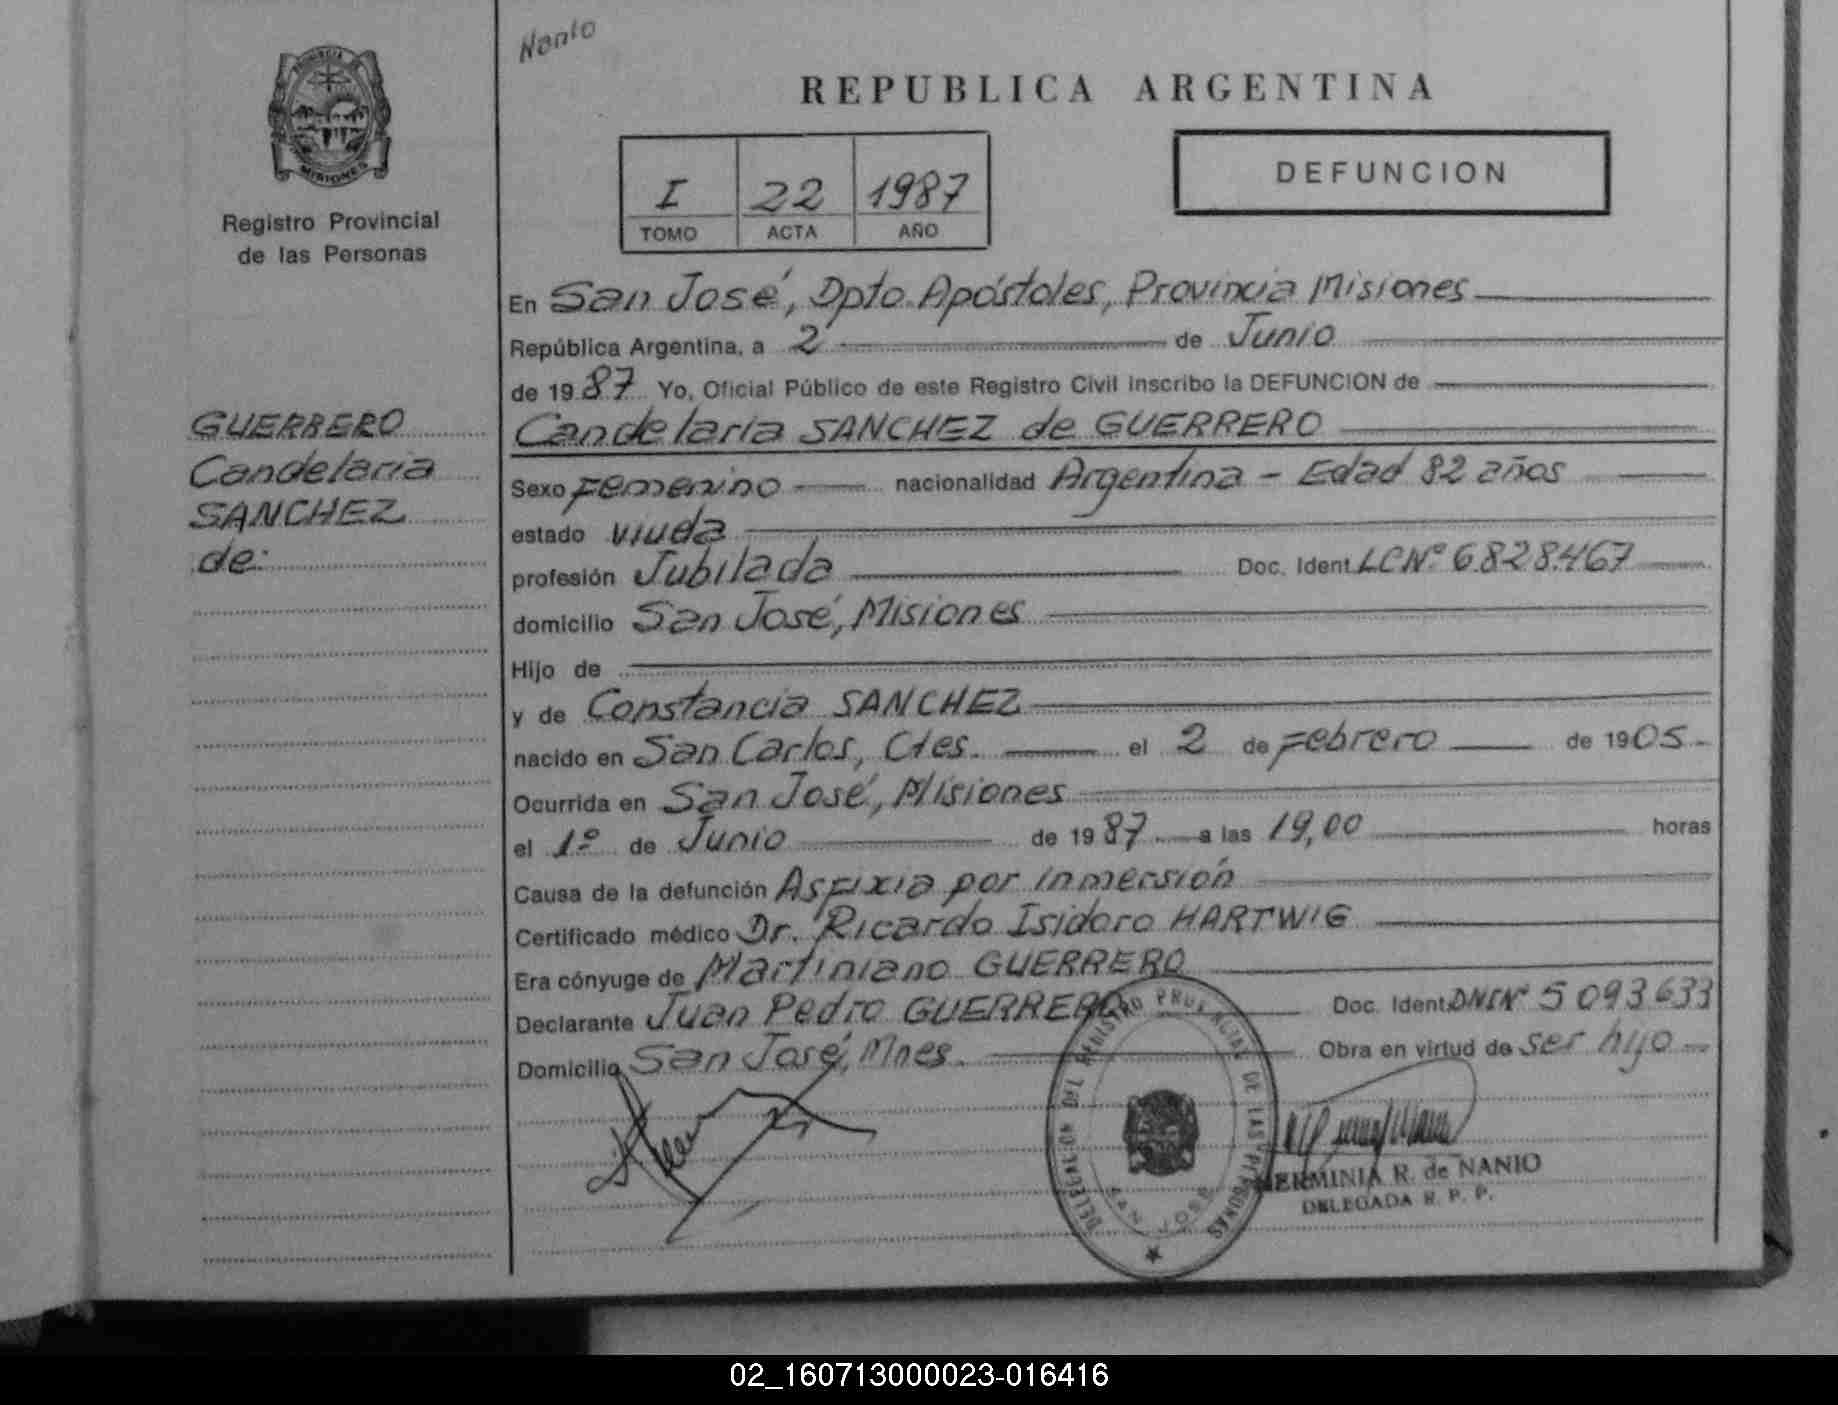 Nanio
PROVINCIA DE
MISIONES
Registro Provincial
de las Personas
GUERRERO
Candelaria
SANCHEZ
de:
REPUBLICA ARGENTINA
I 22 1987
TOMO ACTA AÑO
DEFUNCION
En San José, Dpto. Apóstoles, Provincia Misiones
República Argentina, a 2 de Junio
de 1987 Yo, Oficial Público de este Registro Civil inscribo la DEFUNCION de
Candelaria SANCHEZ de GUERRERO
Sexo Femenino nacionalidad Argentina - Edad 82 años
estado viuda
profesión Jubilada Doc. Ident. LC Nº 6.828.467
domicilio San José, Misiones
Hijo de
y de Constancia SANCHEZ
nacido en San Carlos, Ctes. el 2 de Febrero de 1905
Ocurrida en San José, Misiones
el 1º de Junio de 1987 a las 19,00 horas
Causa de la defunción Asfixia por inmersión
Certificado médico Dr. Ricardo Isidoro HARTWIG
Era cónyuge de Martiniano GUERRERO
Declarante Juan Pedro GUERRERO Doc. Ident. DNI Nº 5 093 633
Domicilio San José, Mnes. Obra en virtud de ser hijo
DELEGACION DEL REGISTRO PROVINCIAL DE LAS PERSONAS
SAN JOSE
HERMINIA R. de NANIO
DELEGADA R. P. P.
02_160713000023-016416